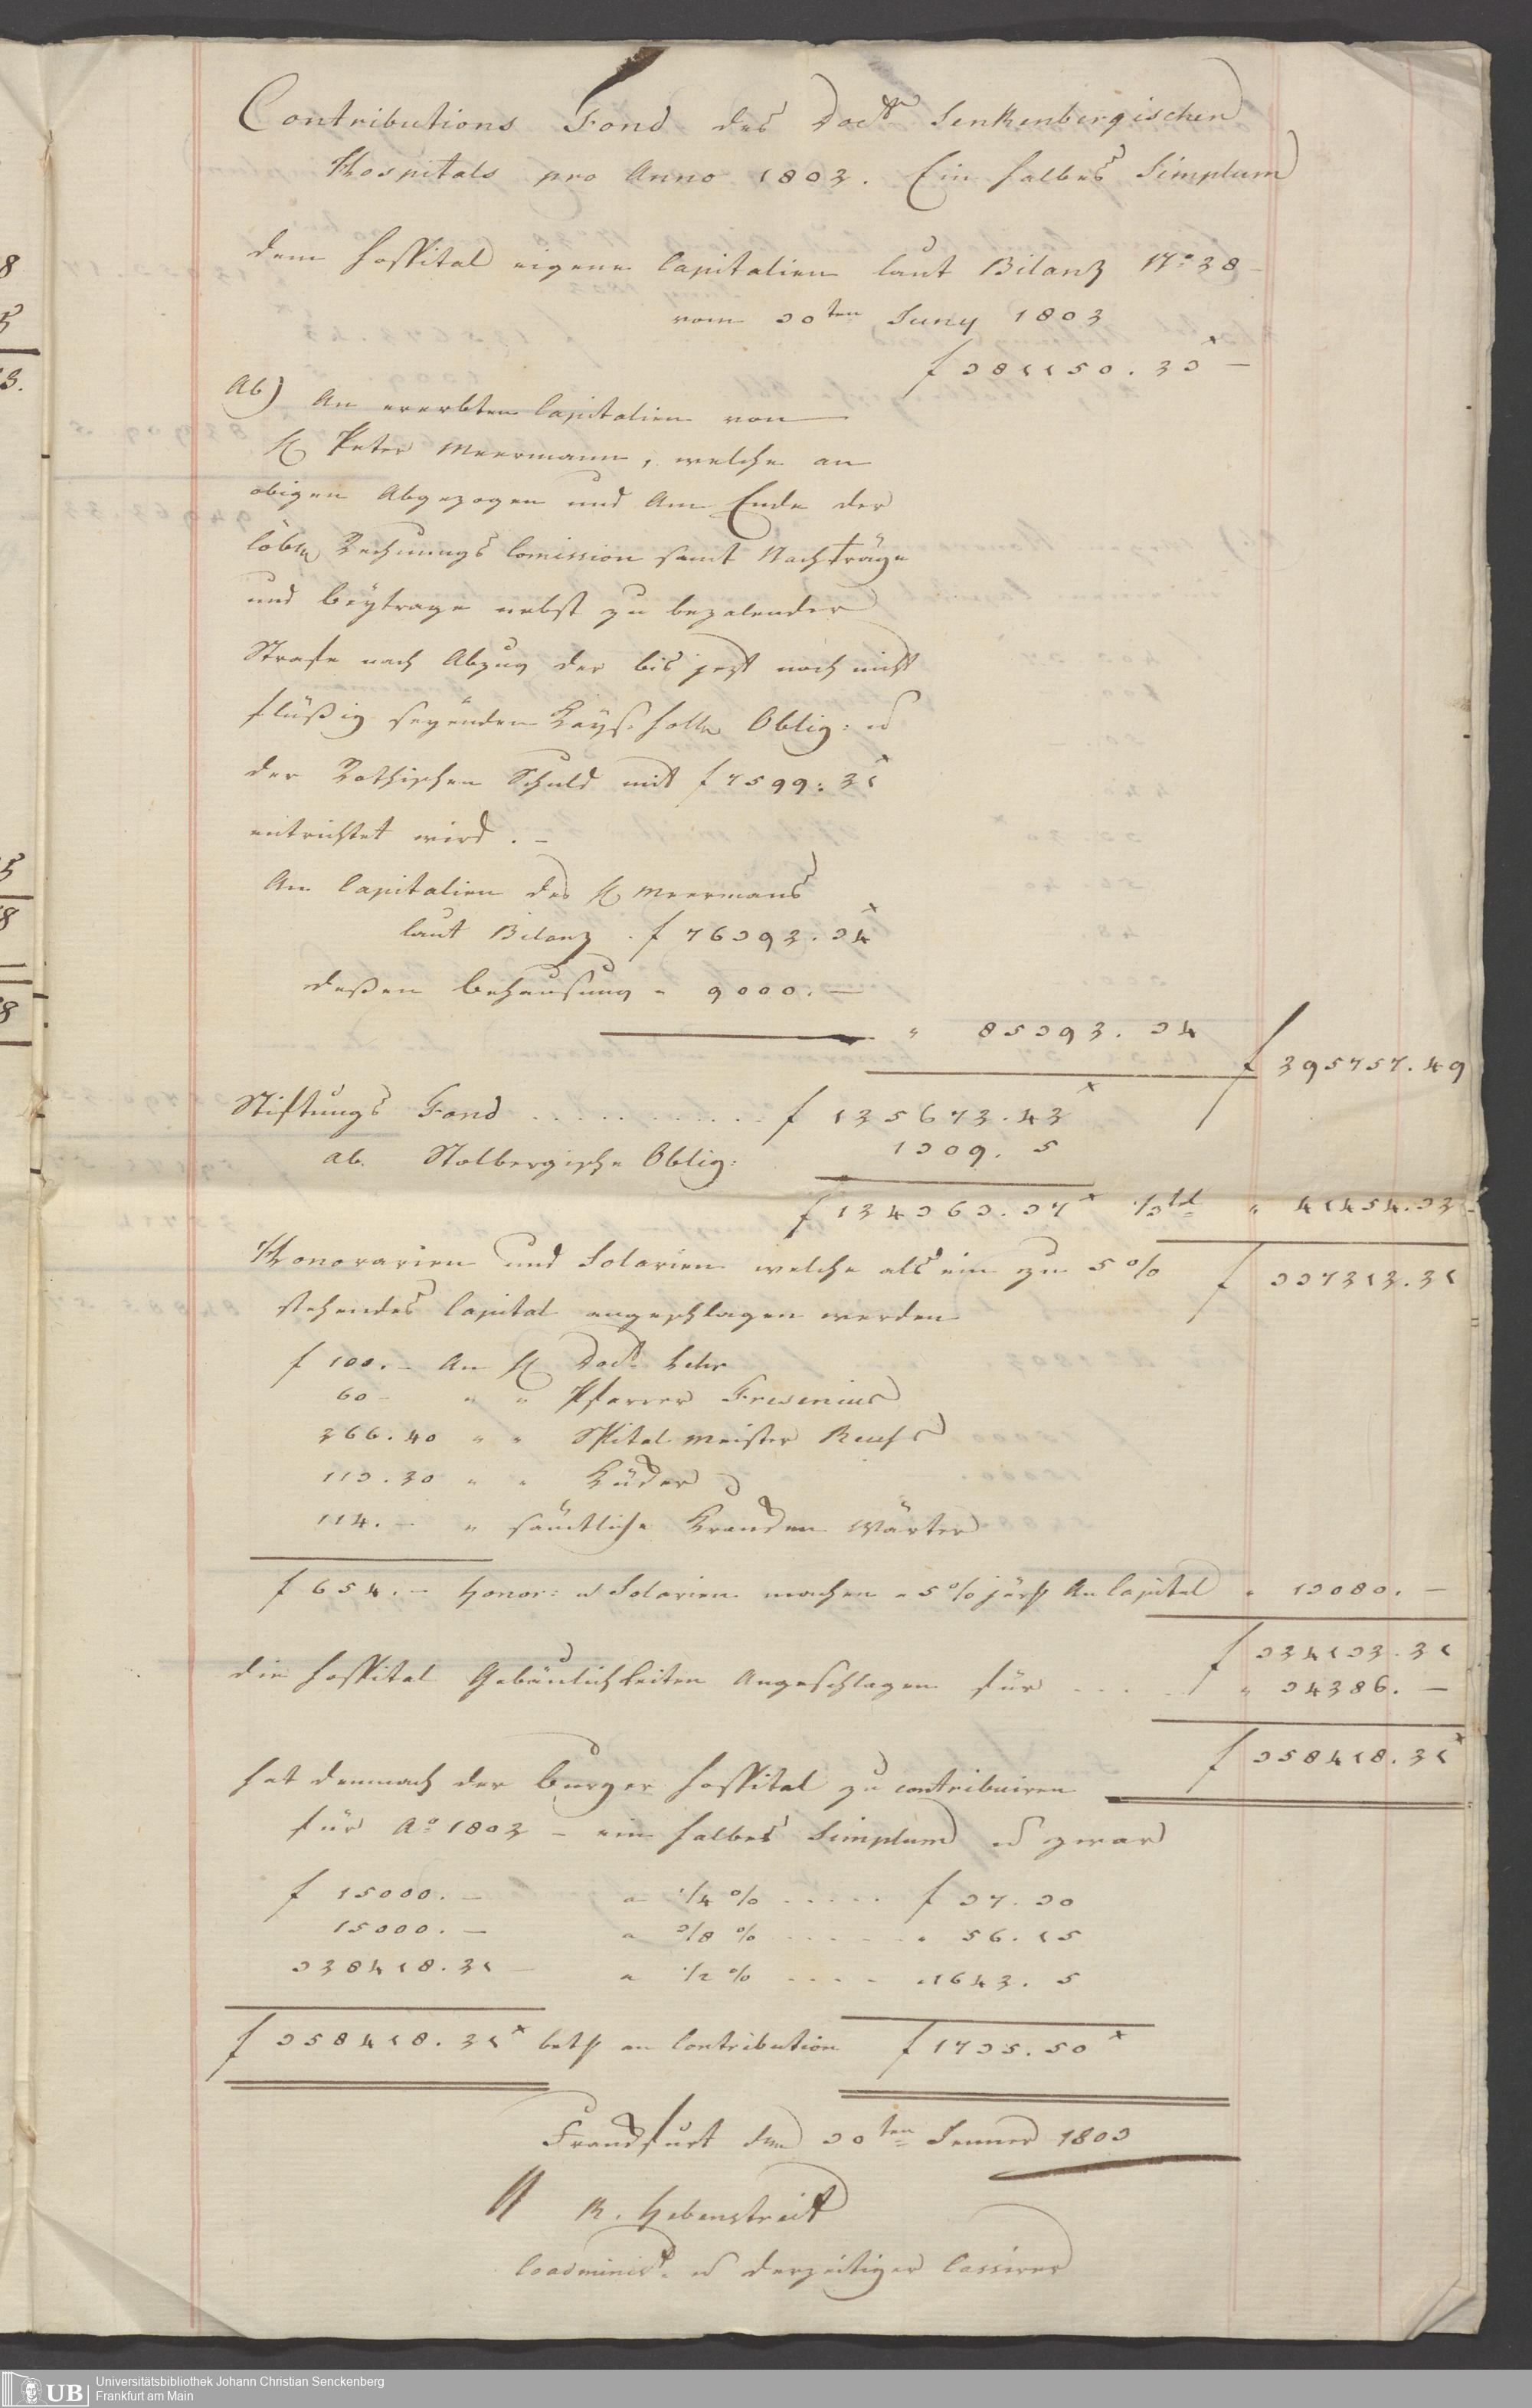 Contributions Fond des Doctr Senkenbergischen
Hospitals pro Anno 1802. Ein halbes Simplum
dem Hospital eigene Capitalien laut Bilanz No 28
vom 30ten Juny 1802
f 381150.23x
Ab) An ererbten Capitalien von
H Peter Meermann, welche an
obigen Abgezogen und Am Ende der
löbln Rechnungs Comission samt Nachträge
und beÿtrage nebst zu bezalender
Strafe nach Abzug der bis jezt noch nicht
flüßig seyenden Kayß. holln Oblig: u
der Rothischen Schuld mit f 7599:21x
entrichtet wird. –
An Capitalien des H Meermans
laut Bilanz . f 76392.34x
deßen Behausung " 9000. –
" 85392.34
f 295757.49
Stiftungs Fond . . . . . . . . . . f 125672.42x
ab. Stolbergische Oblig: 1309. 5
f 124363.37x 1/3tel " 41454.32
Honorarien und Solarien welche als ein zu 5 %
f 337212.21
stehendes Capital angeschlagen werden
f 100. – An H Doctr Lehr
60 – " " Pfarrer Fresenius
266.40 " " Spital Meister Reuhs
113.20 " " Küder
114. – " sämtliche Krancken Wärter
f 654. – Honor: u Solarien machen a 5 % jährl An Capital " 13080. –
f 324132.21
die Hospital Gebäulichkeiten Angeschlagen für . . . . " 34286. –
f 358418.21x
hat demnach der Burger Hospital zu contribuiren
für Ao 1802 – ein halbes Simplum u zwar
f 15000. – a 1/4 % . . . . . f 37.30
15000. – a 3/8 % . . . . . " 56.15
328418.21 – a 1/2 % . . . . " 1642. 5
f 358418.21x betr an Contribution f 1735.50x
Franckfurt den 30ten Jenner 1803
R. Hebenstreit
Coadminist. u derzeitiger Cassirer
UB
Universitätsbibliothek Johann Christian Senckenberg
Frankfurt am Main